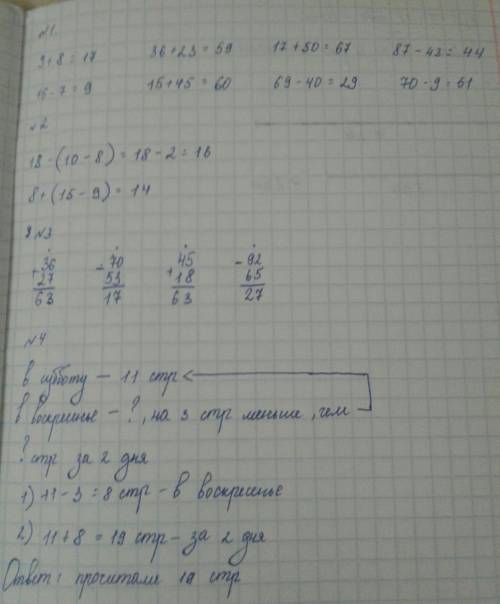 №1.
9+8=17 36+23=59 17+50=67 87-43=44
16-7=9 15+45=60 69-40=29 70-9=61
№2
18-(10-8)=18-2=16
8+(15-9)=14
№3
+36 -70 +45 -92
27 53 18 65
63 17 63 27
№4
В субботу — 11 стр
В воскресенье - ?, на 3 стр меньше, чем
? стр за 2 дня
1) 11-3=8 стр - в воскресенье
2) 11+8=19 стр - за 2 дня
Ответ: прочитали 19 стр